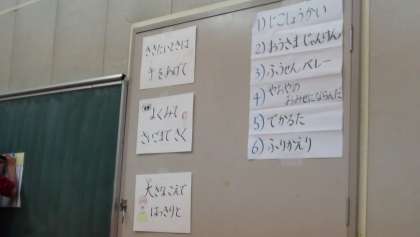 ききたいときは
手をあげて
よくみて。
さいごまできく
大きなこえで
はっきりと
1) じこしょうかい
2) おうさまじゃんけん
3) ふうせんバレー
4) やおやの
おみせにならんだ
5) でかるた
6) ふりかえり